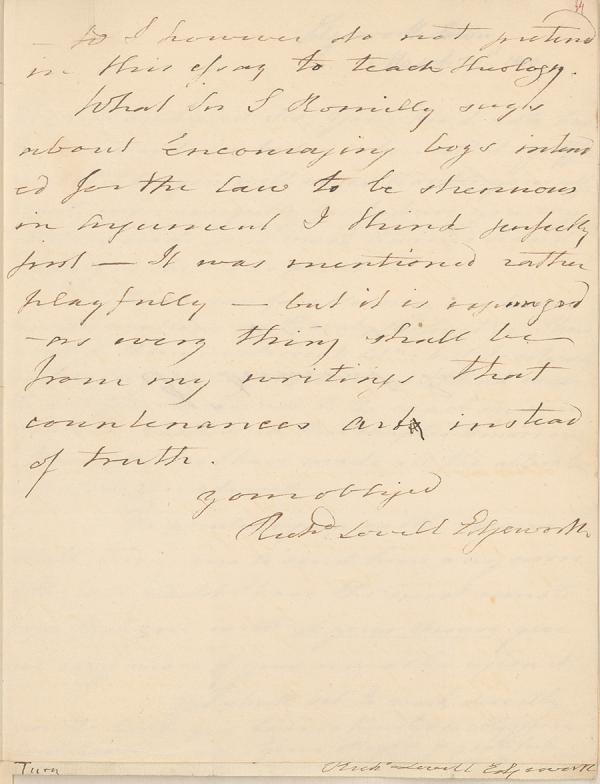 44
— So I however do not pretend
in this essay to teach theology.
What Sir S Romilly says
about Encouraging boys intend
ed for the Law to be strenuous
in argument I think perfectly
just — It was mentioned rather
playfully — but it is expunged
— as every thing shall be
from my writings that
countenances art instead
of truth.
your obliged
Richd Lovell Edgeworth
Turn
Richd Lovell Edgeworth